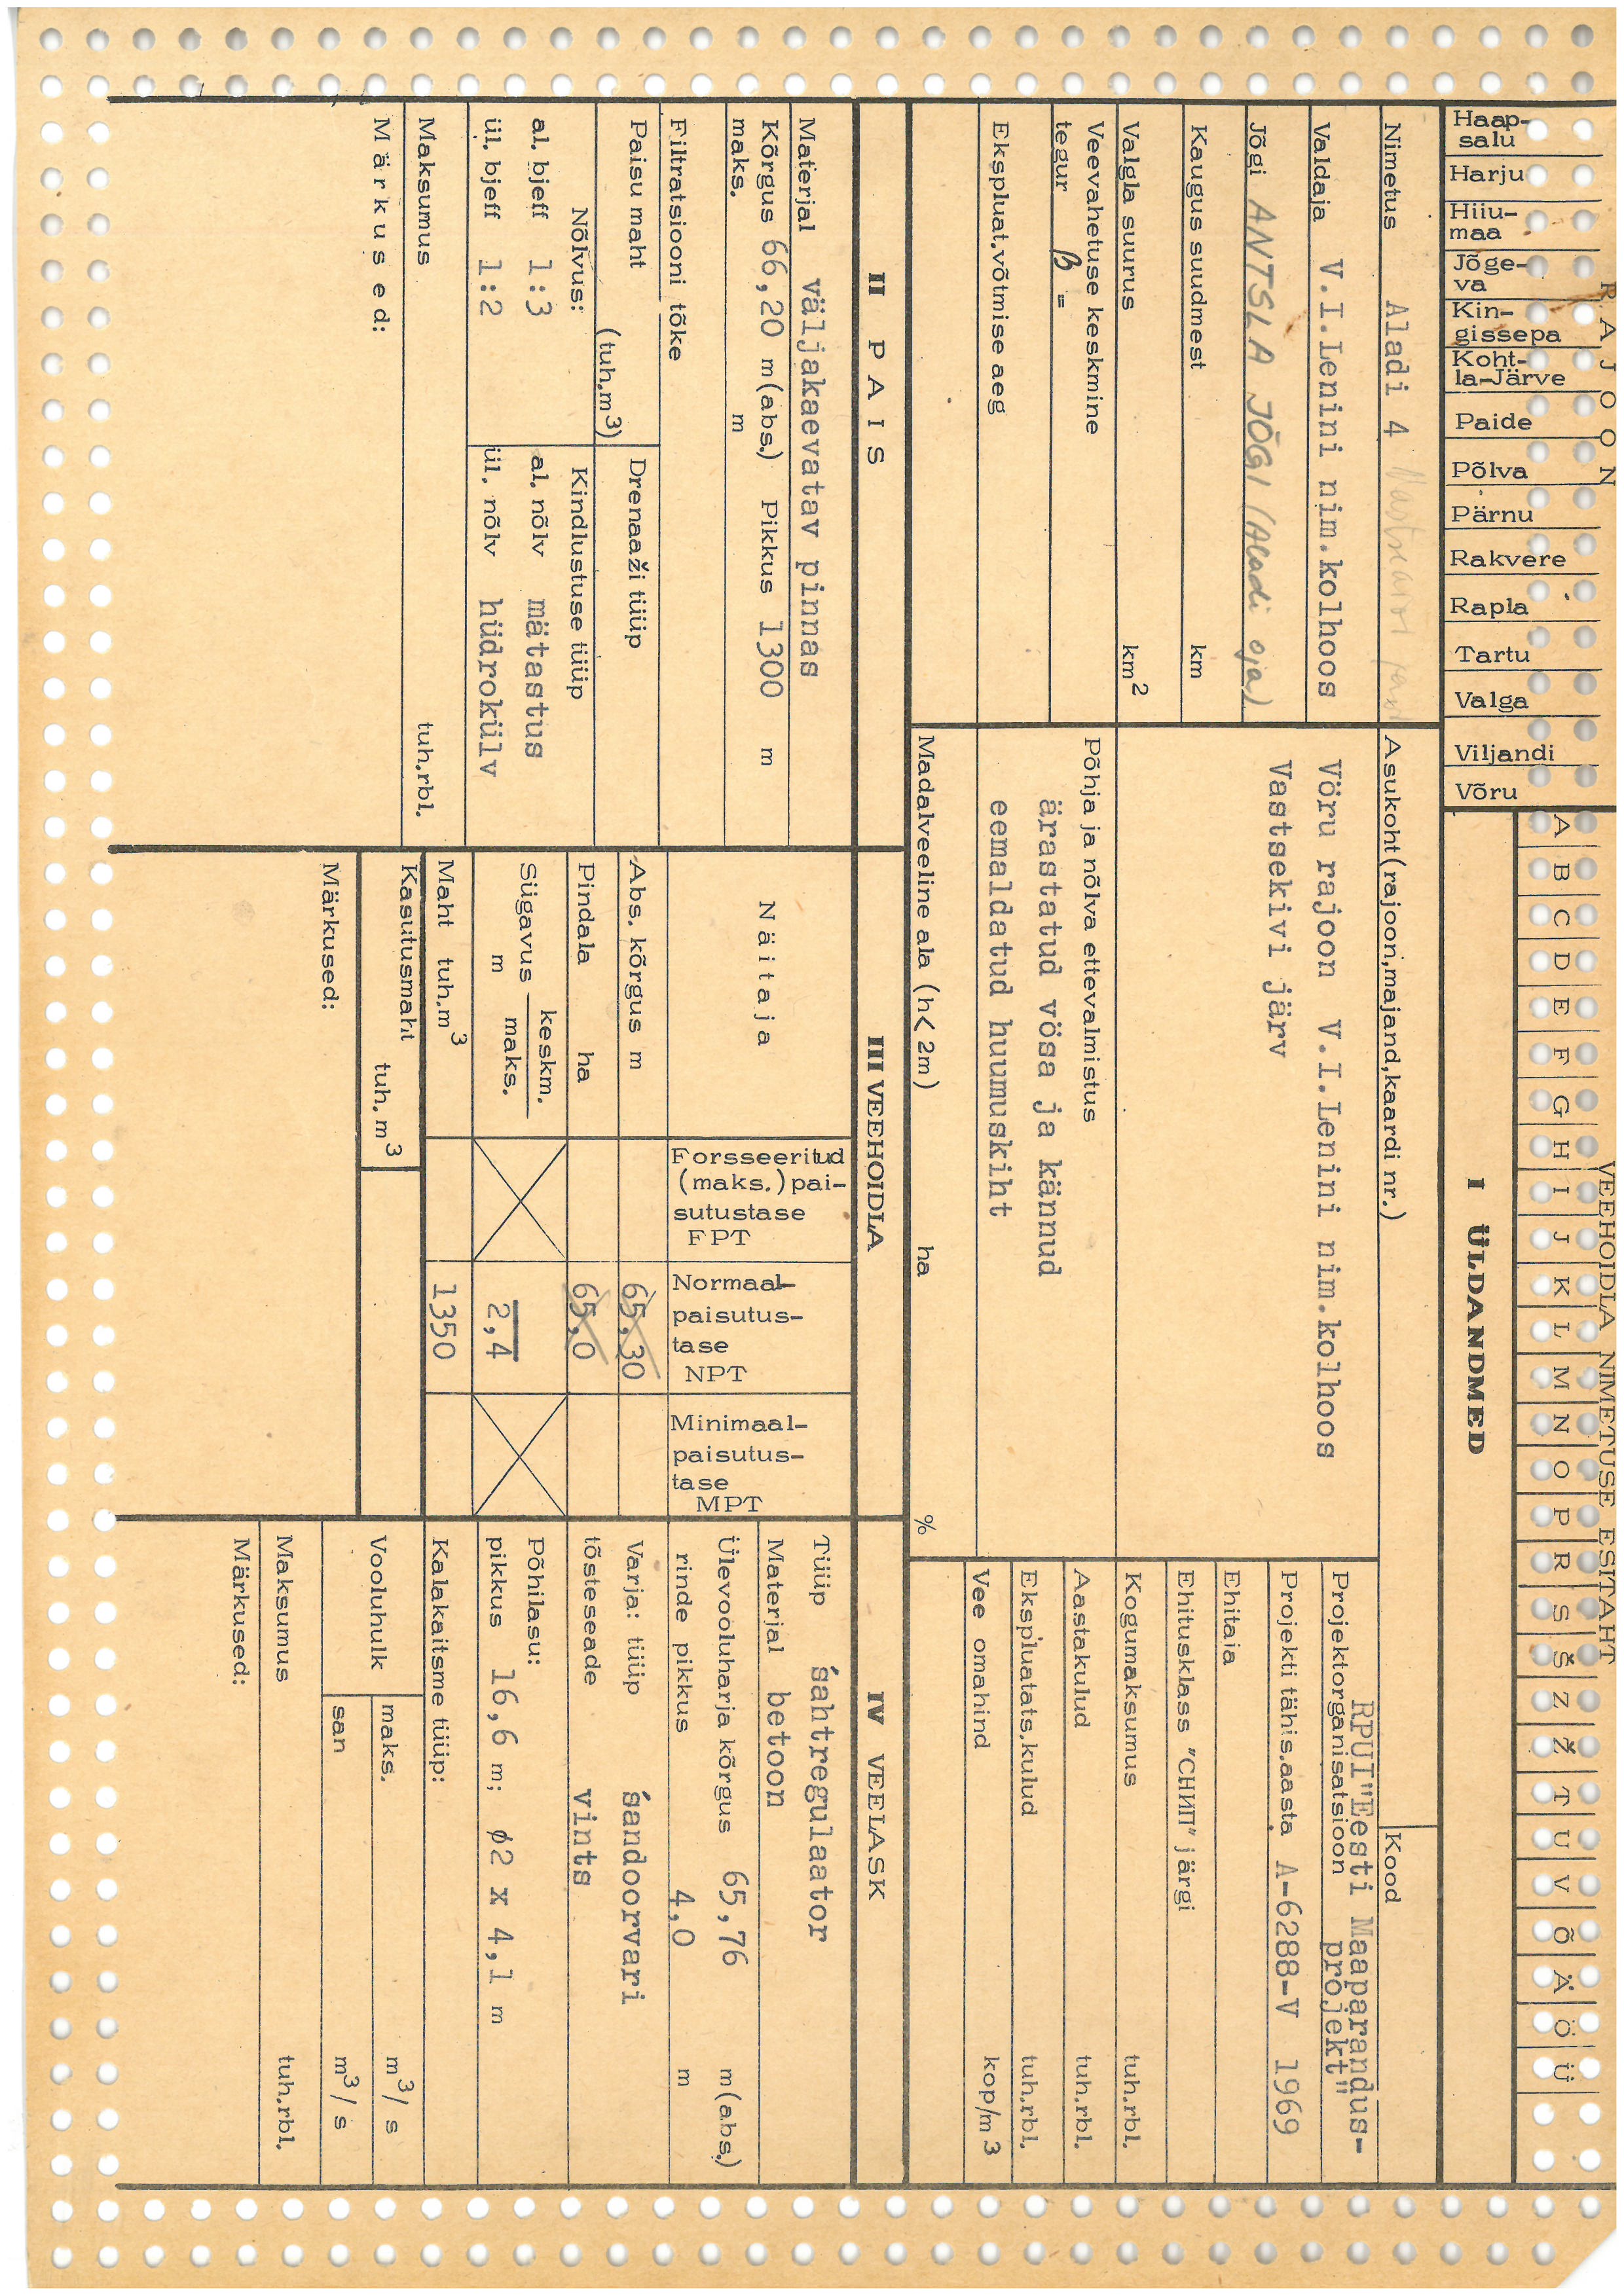 RAJOON
VEEHOIDLA NIMETUSE ESITAHT
Haap-
salu
Harju
Hiiu-
maa
Jõge-
va
Kin-
gissepa
Koht-
la-Järve
Paide
Põlva
Pärnu
Rakvere
Rapla
Tartu
Valga
Viljandi
Võru
A B C D E F G H I J K L M N O P R S Š Z Ž T U V Õ Ä Ö Ü
I ÜLDANDMED
Nimetus Aladi 4
Valdaja V.I.Lenini nim.kolhoos
Jõgi ANTSLA JÕGI (Aladi oja)
Kaugus suudmest km
Valgla suurus km2
Veevahetuse keskmine
tegur β =
Ekspluat.võtmise aeg
Asukoht (rajoon,majand,kaardi nr.)
Võru rajoon V.I.Lenini nim.kolhoos
Vastsekivi järv
Põhja ja nõlva ettevalmistus
ärastatud võsa ja kännud
eemaldatud huumuskiht
Madalveeline ala (h< 2m) ha %
Kood
RPUI"Eesti Maaparandus-
Projektorganisatsioon projekt"
Projekti tähis,aasta A-6288-V 1969
Ehitaja
Ehitusklass "СНИП" järgi
Kogumaksumus tuh.rbl.
Aastakulud tuh.rbl.
Ekspluatats.kulud tuh.rbl.
Vee omahind kop/m3
II PAIS
Materjal väljakaevatav pinnas
Kõrgus 66,20 m(abs.) Pikkus 1300 m
maks. m
Filtratsiooni tõke
Paisu maht (tuh.m3)
Drenaaži tüüp
Nõlvus:
al. bjeff 1:3
ül. bjeff 1:2
Kindlustuse tüüp
al. nõlv mätastus
ül. nõlv hüdrokülv
Maksumus tuh.rbl.
Märkused:
III VEEHOIDLA
Näitaja
Forsseeritud
(maks.) pai-
sutustase
FPT
Normaal-
paisutus-
tase
NPT
Minimaal-
paisutus-
tase
MPT
Abs. kõrgus m 65,30
Pindala ha 65,0
Sügavus keskm.
m maks. 2,4
Maht tuh.m3 1350
Kasutusmaht
tuh. m3
Märkused:
IV VEELASK
Tüüp šahtregulaator
Materjal betoon
Ülevooluharja kõrgus 65,76 m(abs.)
rinde pikkus 4,0 m
Varja: tüüp šandoorvari
tõsteseade vints
Põhilasu:
pikkus 16,6 m; ø2 x 4,1 m
Kalakaitsme tüüp:
Vooluhulk
maks. m3/s
san m3/s
Maksumus tuh.rbl.
Märkused: